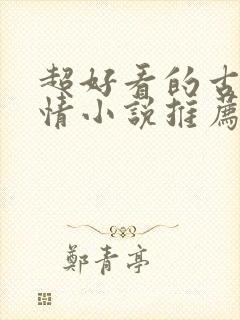 超好看的古
情小説推薦
鄭青亭